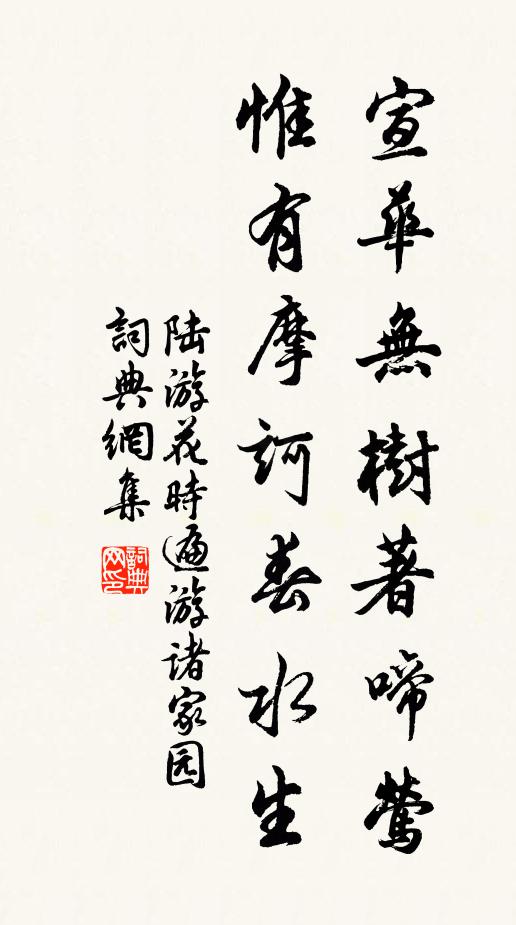 宣華無樹著啼鶯
惟有摩訶春水生
陆游花時遍游诸家园
詞典網集
詞典网印